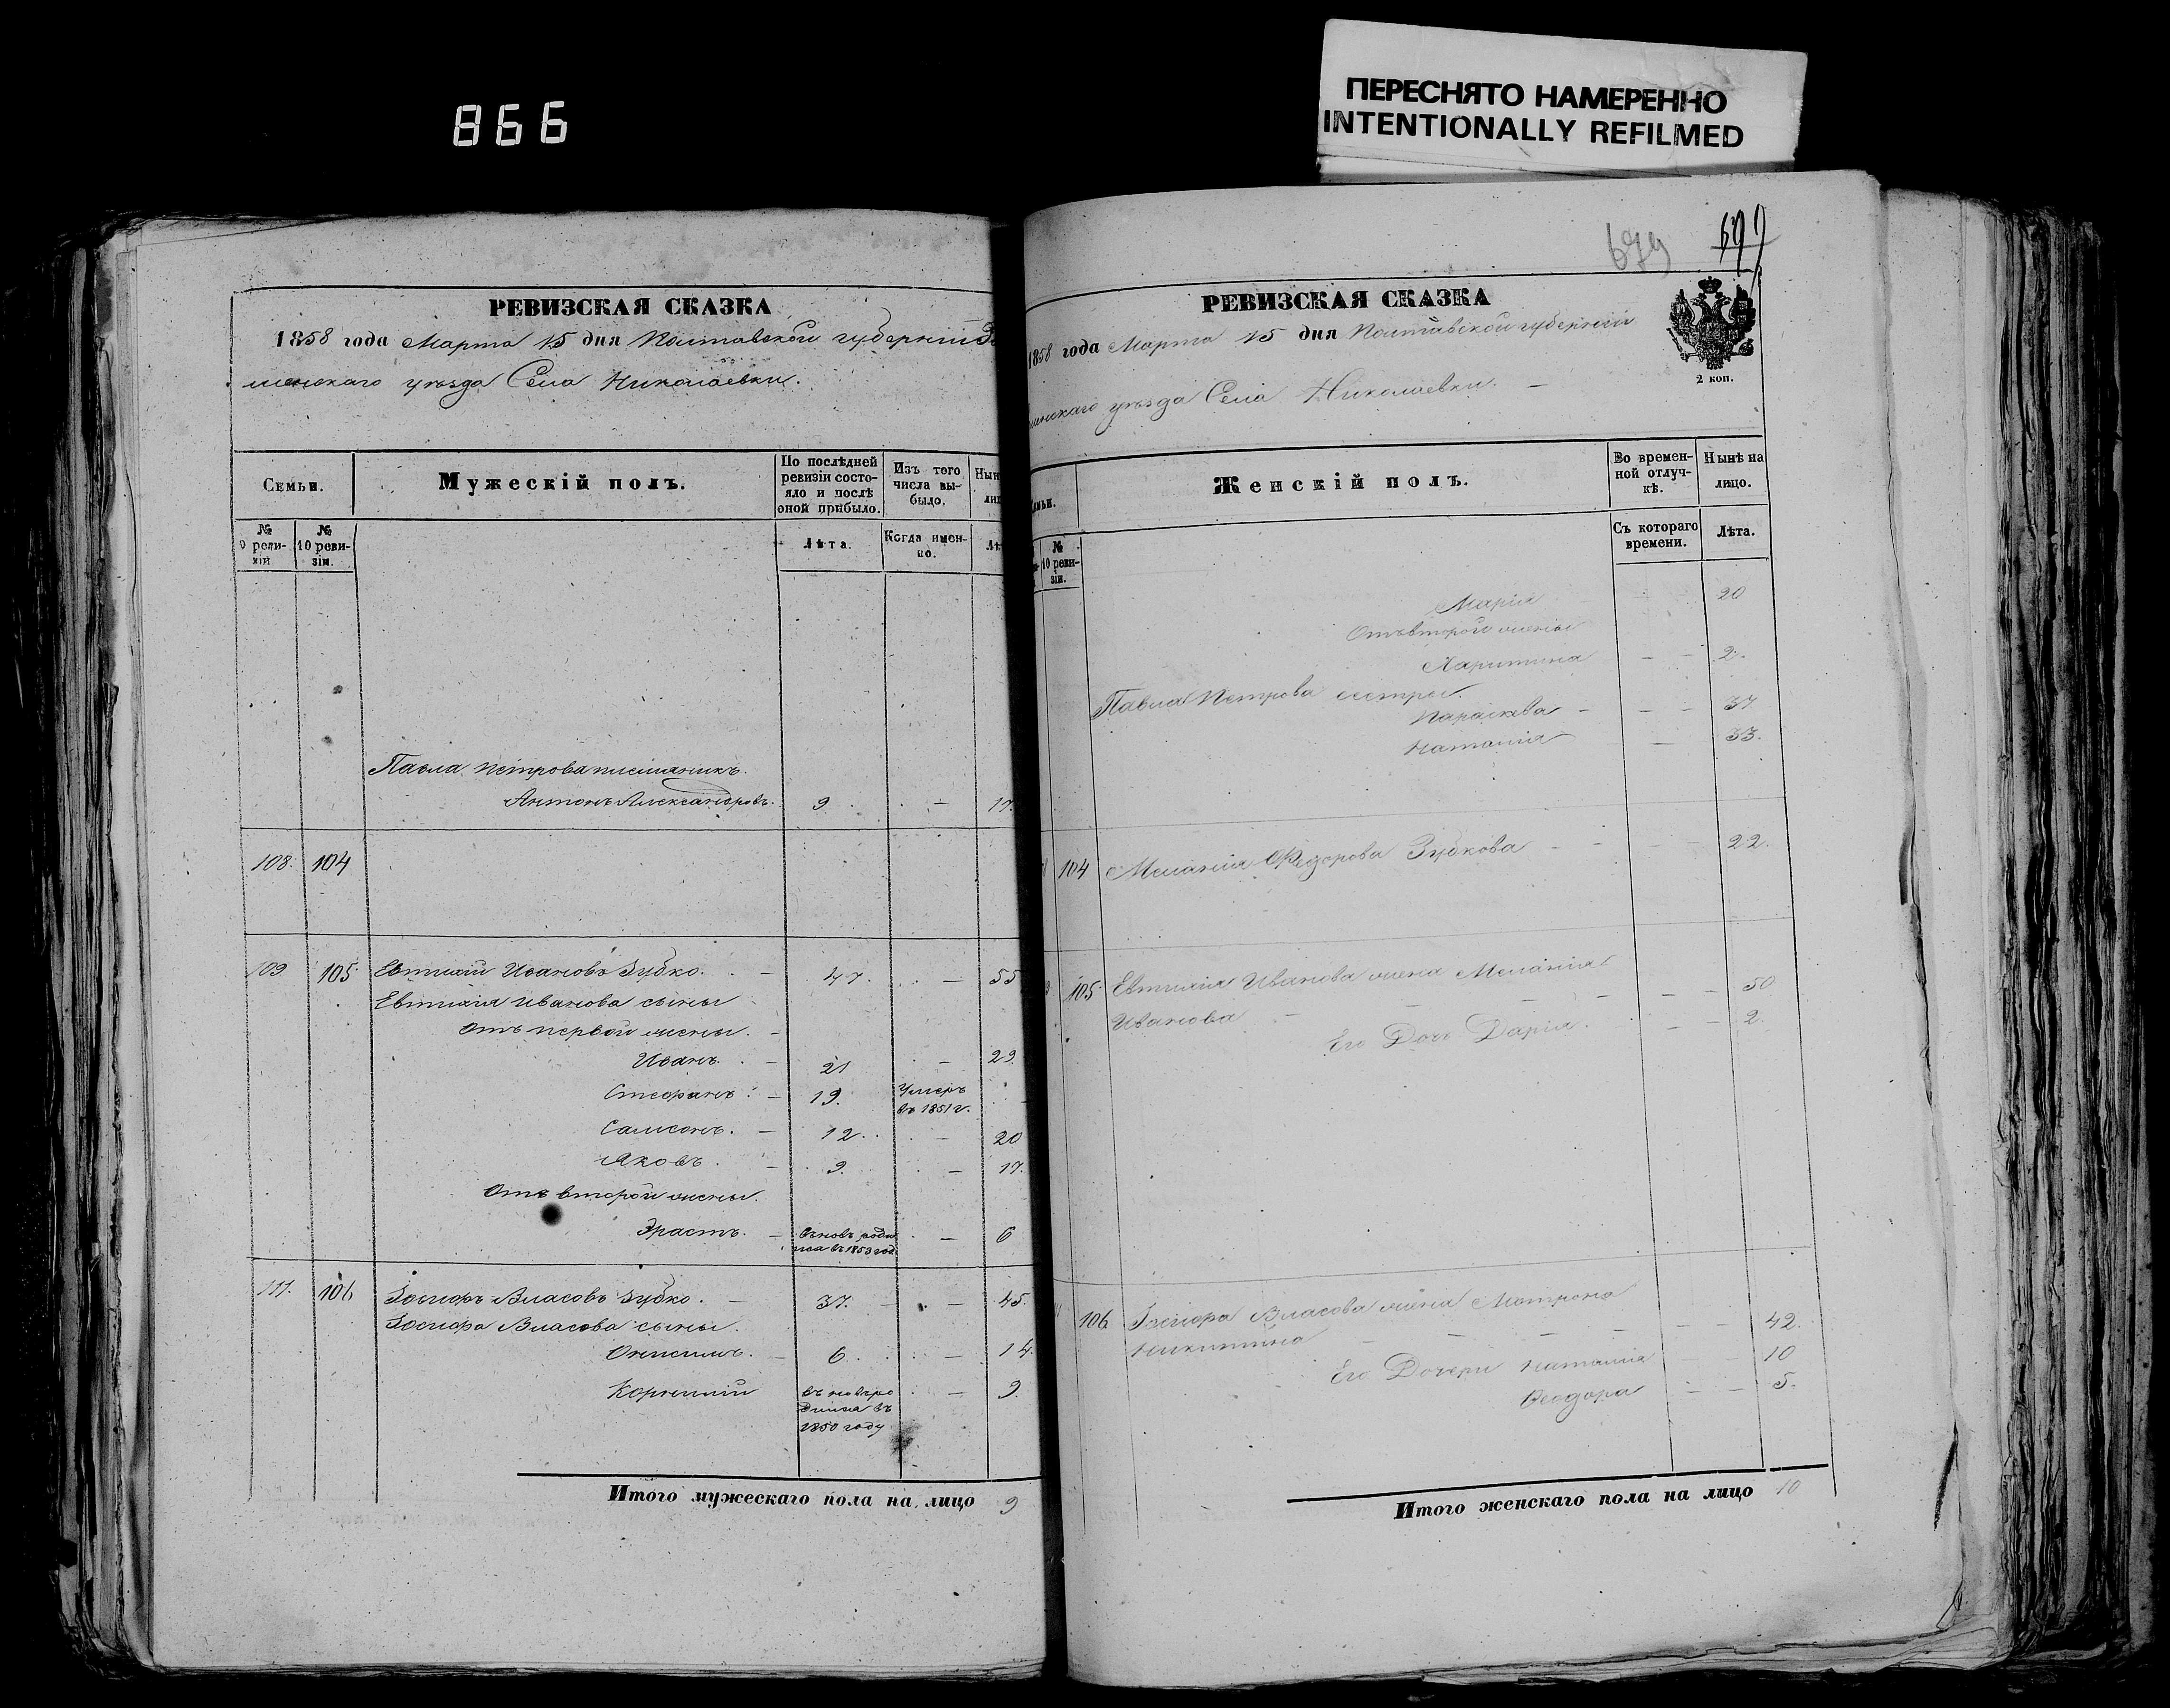 866
ПЕРЕСНЯТО НАМЕРЕННО
INTENTIONALLY REFILMED
РЕВИЗСКАЯ СКАЗКА
1858 года Марта 15 дня Полтавской губерніи
уѣзда Села Николаевки.
Семьи.
Мужескій полъ.
По послѣдней ревизіи состояло и послѣ оной прибыло.
Изъ того числа выбыло.
№ 10 ревизіи.
Лѣта.
Когда именно.
Павла Петрова племяникъ
Антонъ Александровъ. 9 — 17.
108. 104
109 105. Евтихій Ивановъ Зубко. — 47. — 55
Евтихія Иванова сыны
Отъ первой жены. —
Иванъ. — 21 — 29.
Стефанъ. — 19. Умеръ въ 1851 г. —
Самсонъ. — 12. — 20
Яковъ. — 9. — 17.
Отъ второй жены.
Эрастъ. — — 6
111. 106 Іосифъ Власовъ Зубко. — 37. — 45.
Іосифа Власова сыны.
Онисимъ. — 6. — 14.
Корнилій въ новъ родился въ 1850 году — 9.
Итого мужескаго пола на лицо 9
679
РЕВИЗСКАЯ СКАЗКА
1858 года Марта 15 дня Полтавской губерніи
уѣзда Села Николаевки. —
2 коп.
Женскій полъ.
Во временной отлучкѣ.
Нынѣ на лицо.
№ 10 ревизіи.
Съ котораго времени.
Лѣта.
Марія 20
Отъ второй жены
Харитина — — 2.
Павла Петрова сестры
Параскева — — — 37
Наталія — 33.
104 Меланія Федорова Зубкова — — 22.
105. Евтихія Иванова жена Меланія
Иванова — — — — — — 50
Его Дочь Дарія. — — 2.
106 Іосифа Власова жена Матрона
Никитина — — — — — — 42.
Его Дочери Наталія — — 10
Феодора — — 5.
Итого женскаго пола на лицо 10